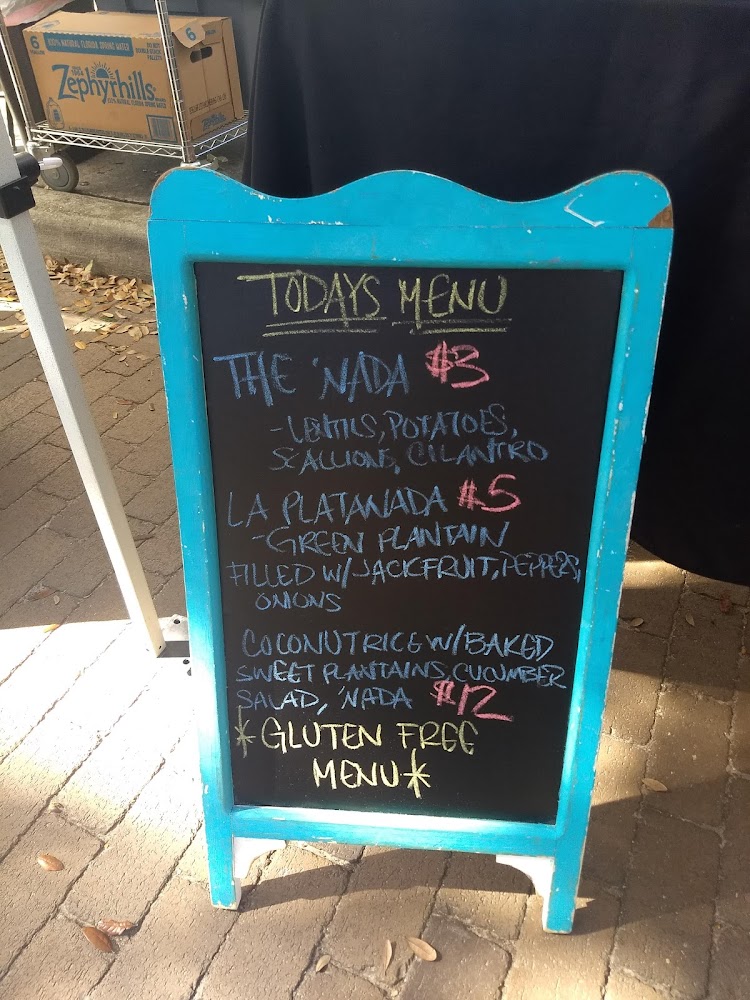 6
100% NATURAL FLORIDA SPRING WATER
6
Zephyrhills
TODAYS MENU
THE 'NADA $3
-LENTILS, POTATOES,
SCALLIONS, CILANTRO
LA PLATANADA $5
-GREEN PLANTAIN
FILLED W/ JACKFRUIT, PEPPERS,
ONIONS
COCONUT RICE W/ BAKED
SWEET PLANTAINS, CUCUMBER
SALAD, 'NADA $12
*GLUTEN FREE
MENU*